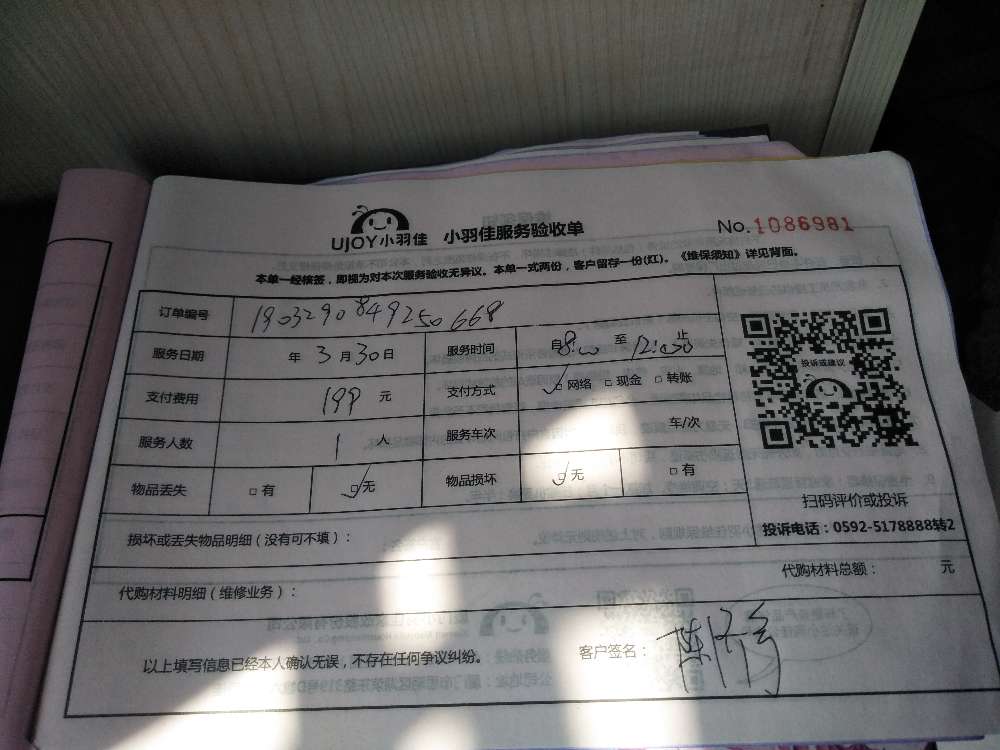 UJOY小羽佳 小羽佳服务验收单 No.1086981
本单一经核签，即视为对本次服务验收无异议。本单一式两份，客户留存一份(红)。《维保须知》详见背面。
订单编号 1903290849250668
服务日期 年 3月30日 服务时间 自8:00 至 止
支付费用 199 元 支付方式 □网络 □现金 □转账
投诉或建议
服务人数 1 人 服务车次 车/次
物品丢失 □有 □无 物品损坏 □无 □有
扫码评价或投诉
投诉电话：0592-5178888转2
损坏或丢失物品明细（没有可不填）：
代购材料明细（维修业务）： 代购材料总额： 元
以上填写信息已经本人确认无误，不存在任何争议纠纷。 客户签名：